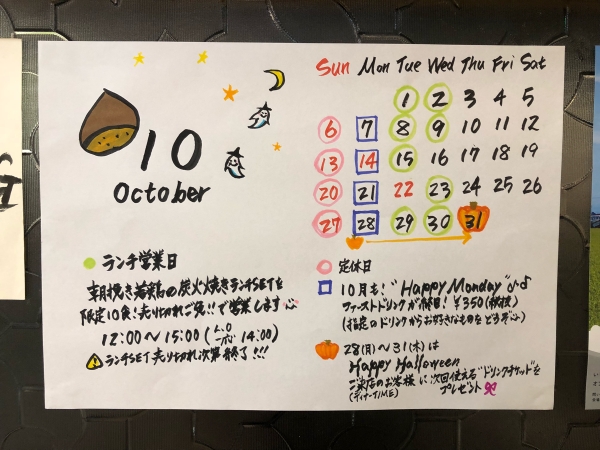 10
October
Sun Mon Tue Wed Thu Fri Sat
1 2 3 4 5
6 7 8 9 10 11 12
13 14 15 16 17 18 19
20 21 22 23 24 25 26
27 28 29 30 31
ランチ営業日
朝挽き若鶏の炭火焼きランチSETを
限定10食!売り切れご免!!で営業します
12:00〜15:00(L.O 14:00)
ランチSET売り切れ次第終了!!!
定休日
10月も!"Happy Monday"♪♪
ファーストドリンクが終日!¥350(税抜)
(指定のドリンクからお好きなものをどうぞ)
28(月)〜31(木)は
Happy Halloween
ご来店のお客様に次回使える"ドリンクチケット"を
(ディナーTIME)
プレゼント